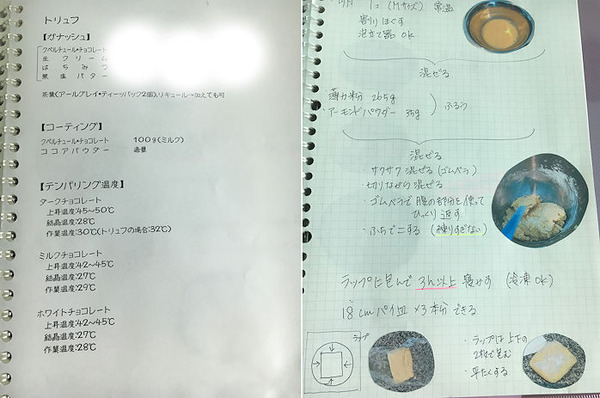 トリュフ
【ガナッシュ】
クベルチュール・チョコレート
生クリーム
はちみつ
無塩バター
茶葉(アールグレイ・ティーバック2個)、リキュール→加えても可
【コーティング】
クベルチュール・チョコレート 100g(ミルク)
ココアパウダー 適量
【テンパリング温度】
ダークチョコレート
上昇温度:45〜50℃
結晶温度:28℃
作業温度:30℃(トリュフの場合:32℃)
ミルクチョコレート
上昇温度:42〜45℃
結晶温度:27℃
作業温度:29℃
ホワイトチョコレート
上昇温度:42〜45℃
結晶温度:27℃
作業温度:28℃
(Mサイズ) 常温
割りほぐす
泡立て器 OK
混ぜる
薄力粉 265g
・アーモンドパウダー 35g
ふるう
混ぜる
サクサク混ぜる(ゴムベラ)
・切りながら混ぜる
・ゴムベラで腹の部分を使って
ひっくり返す
・ふちでこする(練りすぎない)
ラップに包んで 3h以上 寝かす (冷凍OK)
18cmパイ皿×3本分できる
ラップ
・ラップは上下の
2枚で包む
・平たくする